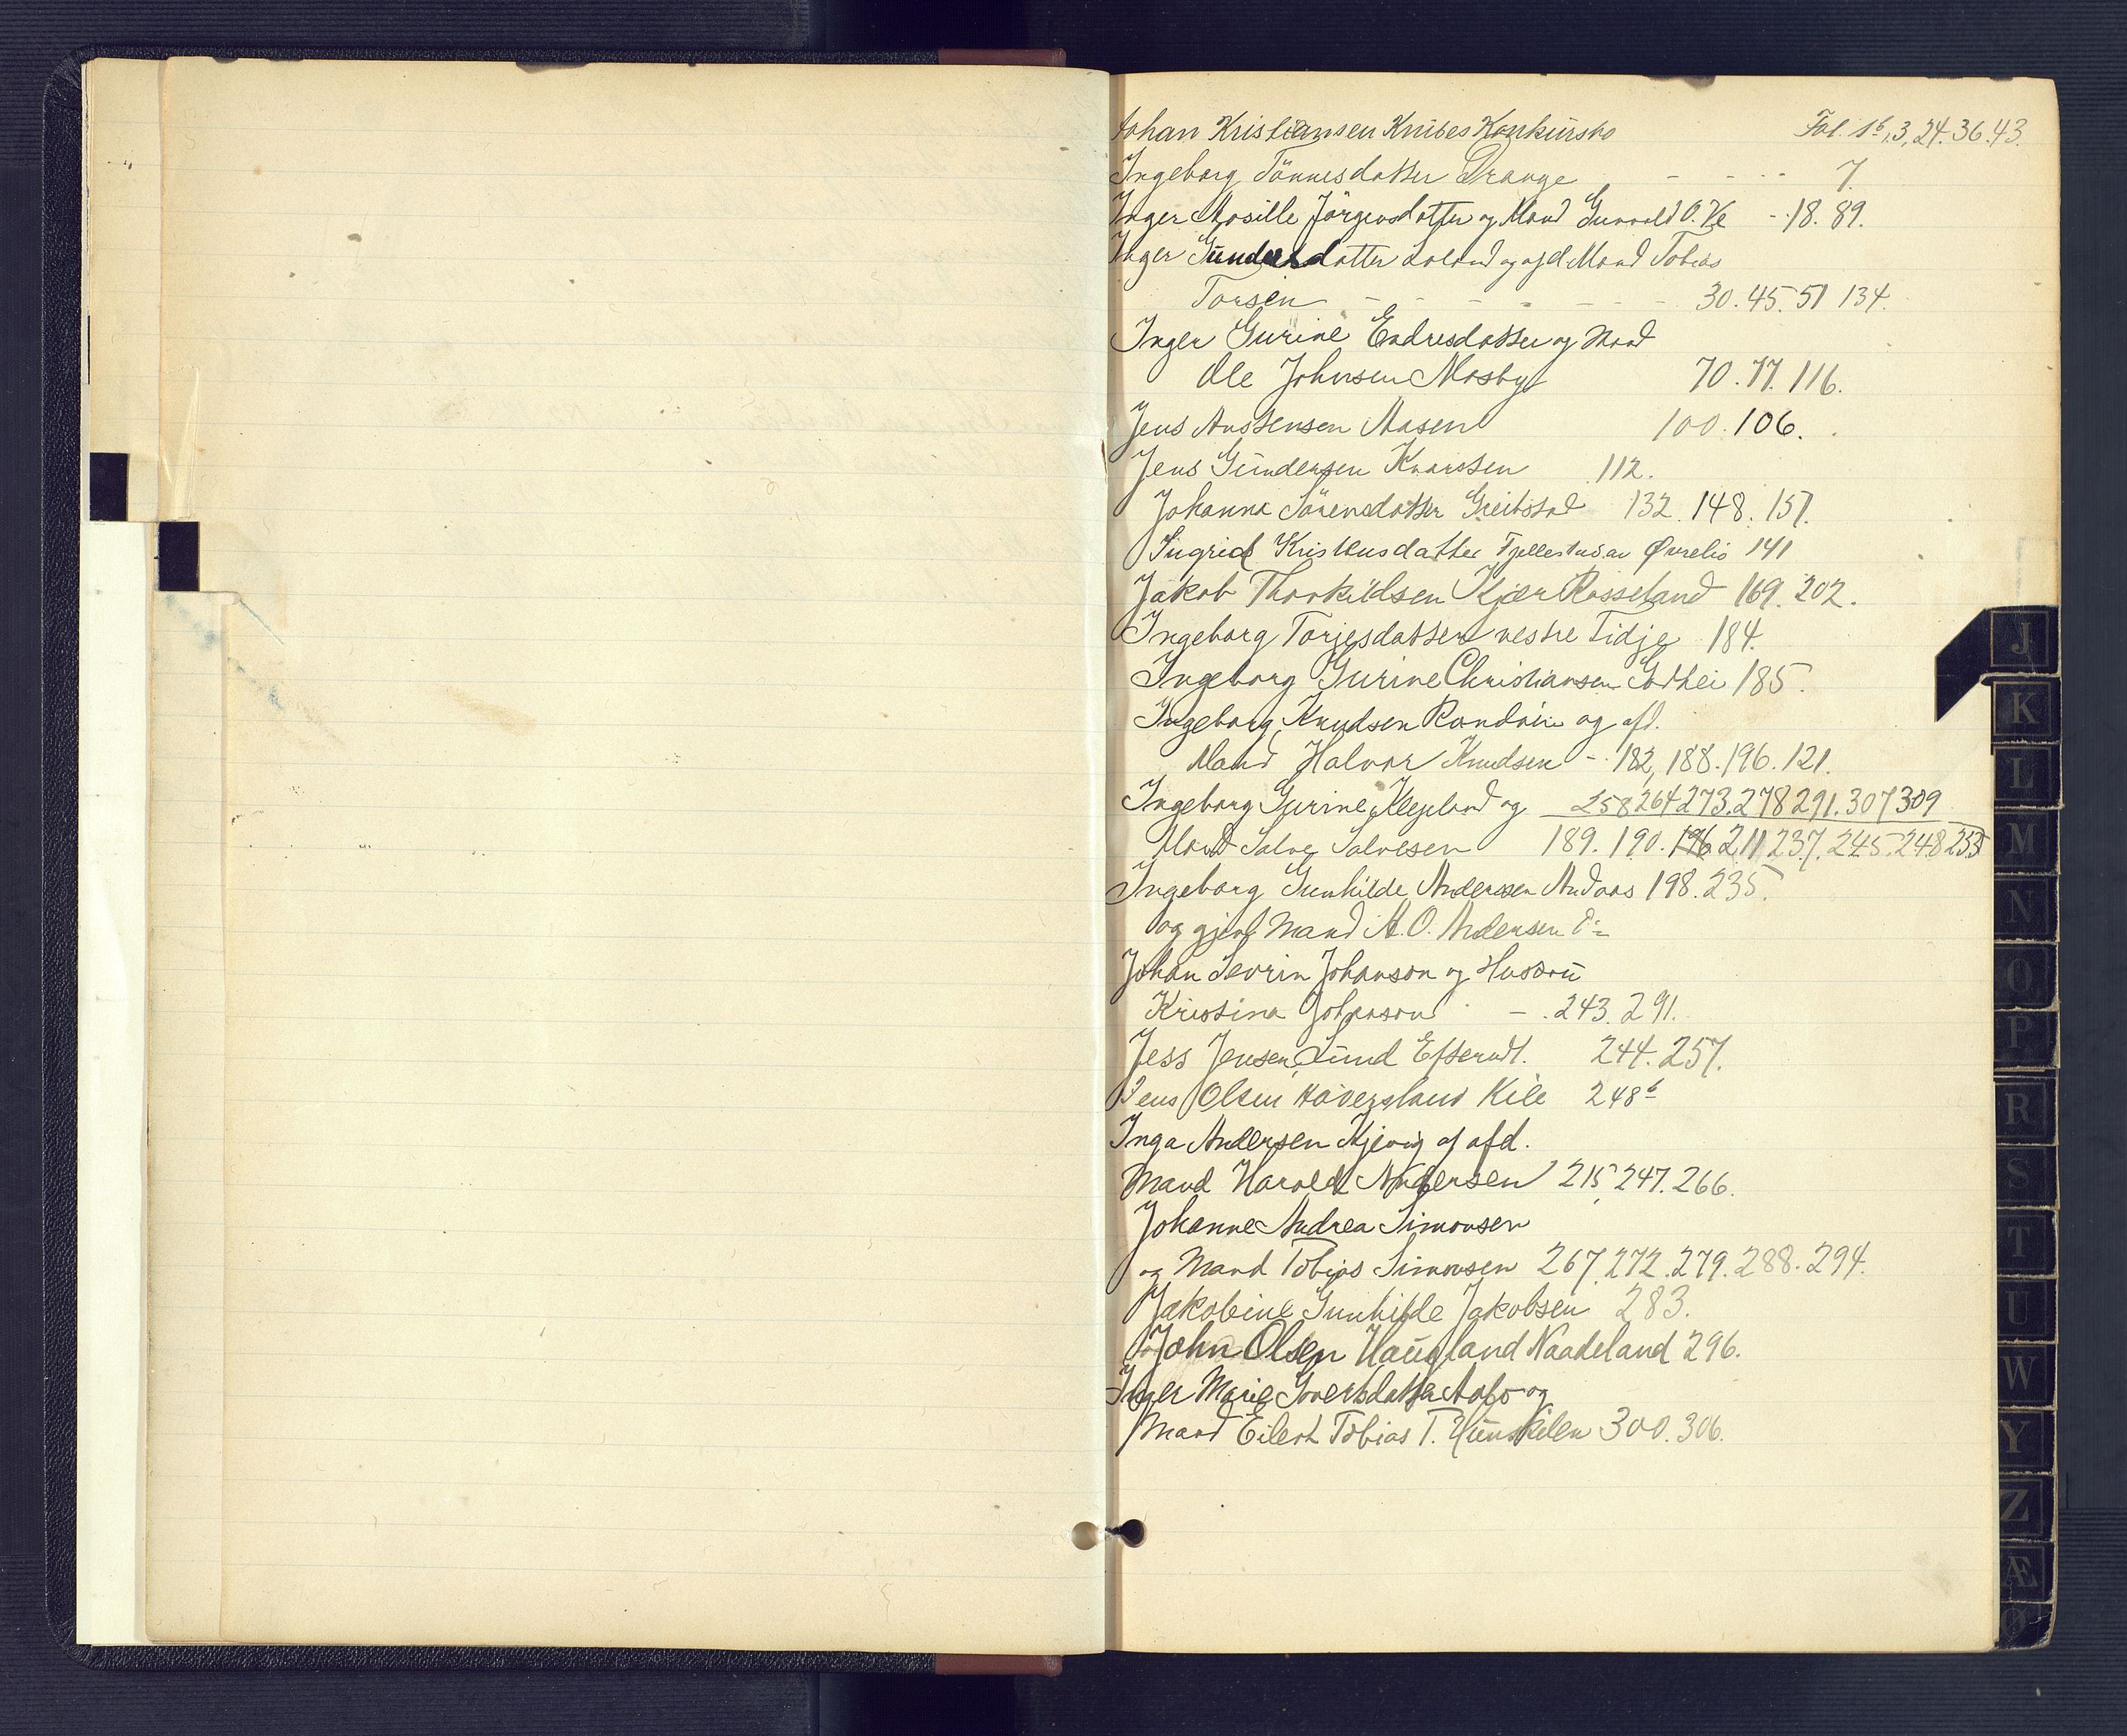 Johan Kristiansen Knibes Konkursbo Fol. 1b, 3, 24. 36. 43.
Ingeborg Tönnesdatter Drange - - - - 7.
Inger Mosille Jörgensdatter og Mand Gunvald O. Ve - 18. 89.
Inger Gundersdatter Loland og afd Mand Tobias
Torsen - - - - - - - 30. 45. 51 134.
Inger Gurine Endresdatter og Mand
Ole Johnsen Mosby 70. 77. 116.
Jens Austensen Aasen 100. 106.
Jens Gundersen Knarsten 112.
Johanna Sörensdatter Greibstad 132. 148. 157.
Ingrid Kristensdatter Øvrebö 141
Jakob Thorkildsen Kjær Rosseland 169. 202.
Ingeborg Torjesdatter vestre Tidje 184.
Ingeborg Gurine Christiansen Godhei 185.
Ingeborg Knudsen Randöen og afd.
Mand Halvor Knudsen - 182, 188. 196. 121.
Ingeborg Gurine Klepland og 258 264 273. 278 291. 307 309
Mand Salve Salvesen 189. 190. 196 211 237. 245. 248 253
Ingeborg Gunhilde Anderssen Andaas 198. 235.
og gjenl Mand A. O. Andersen d:=
Johan Sevrin Johanson og Hustru
Kristina Johanson - . 243. 291.
Jess Jensen Lund Efterndl. 244. 257.
Jens Olsen Haversland Kile 248b
Inga Andersen Kjevig og afd.
Mand Harald Andersen 215, 247. 266.
Johanne Andrea Simonsen
og Mand Tobias Simonsen 267, 272. 279. 288. 294.
Jakobine Gunhilde Jakobsen 283.
John Olsen Haugland Naadeland 296.
Inger Marie Govertsdatter og
Mand Eilert Tobias T. Hunskilen 300. 306.
J
K
L
M
N
O
P
R
S
T
U
W
Y
Z
Æ
Ø